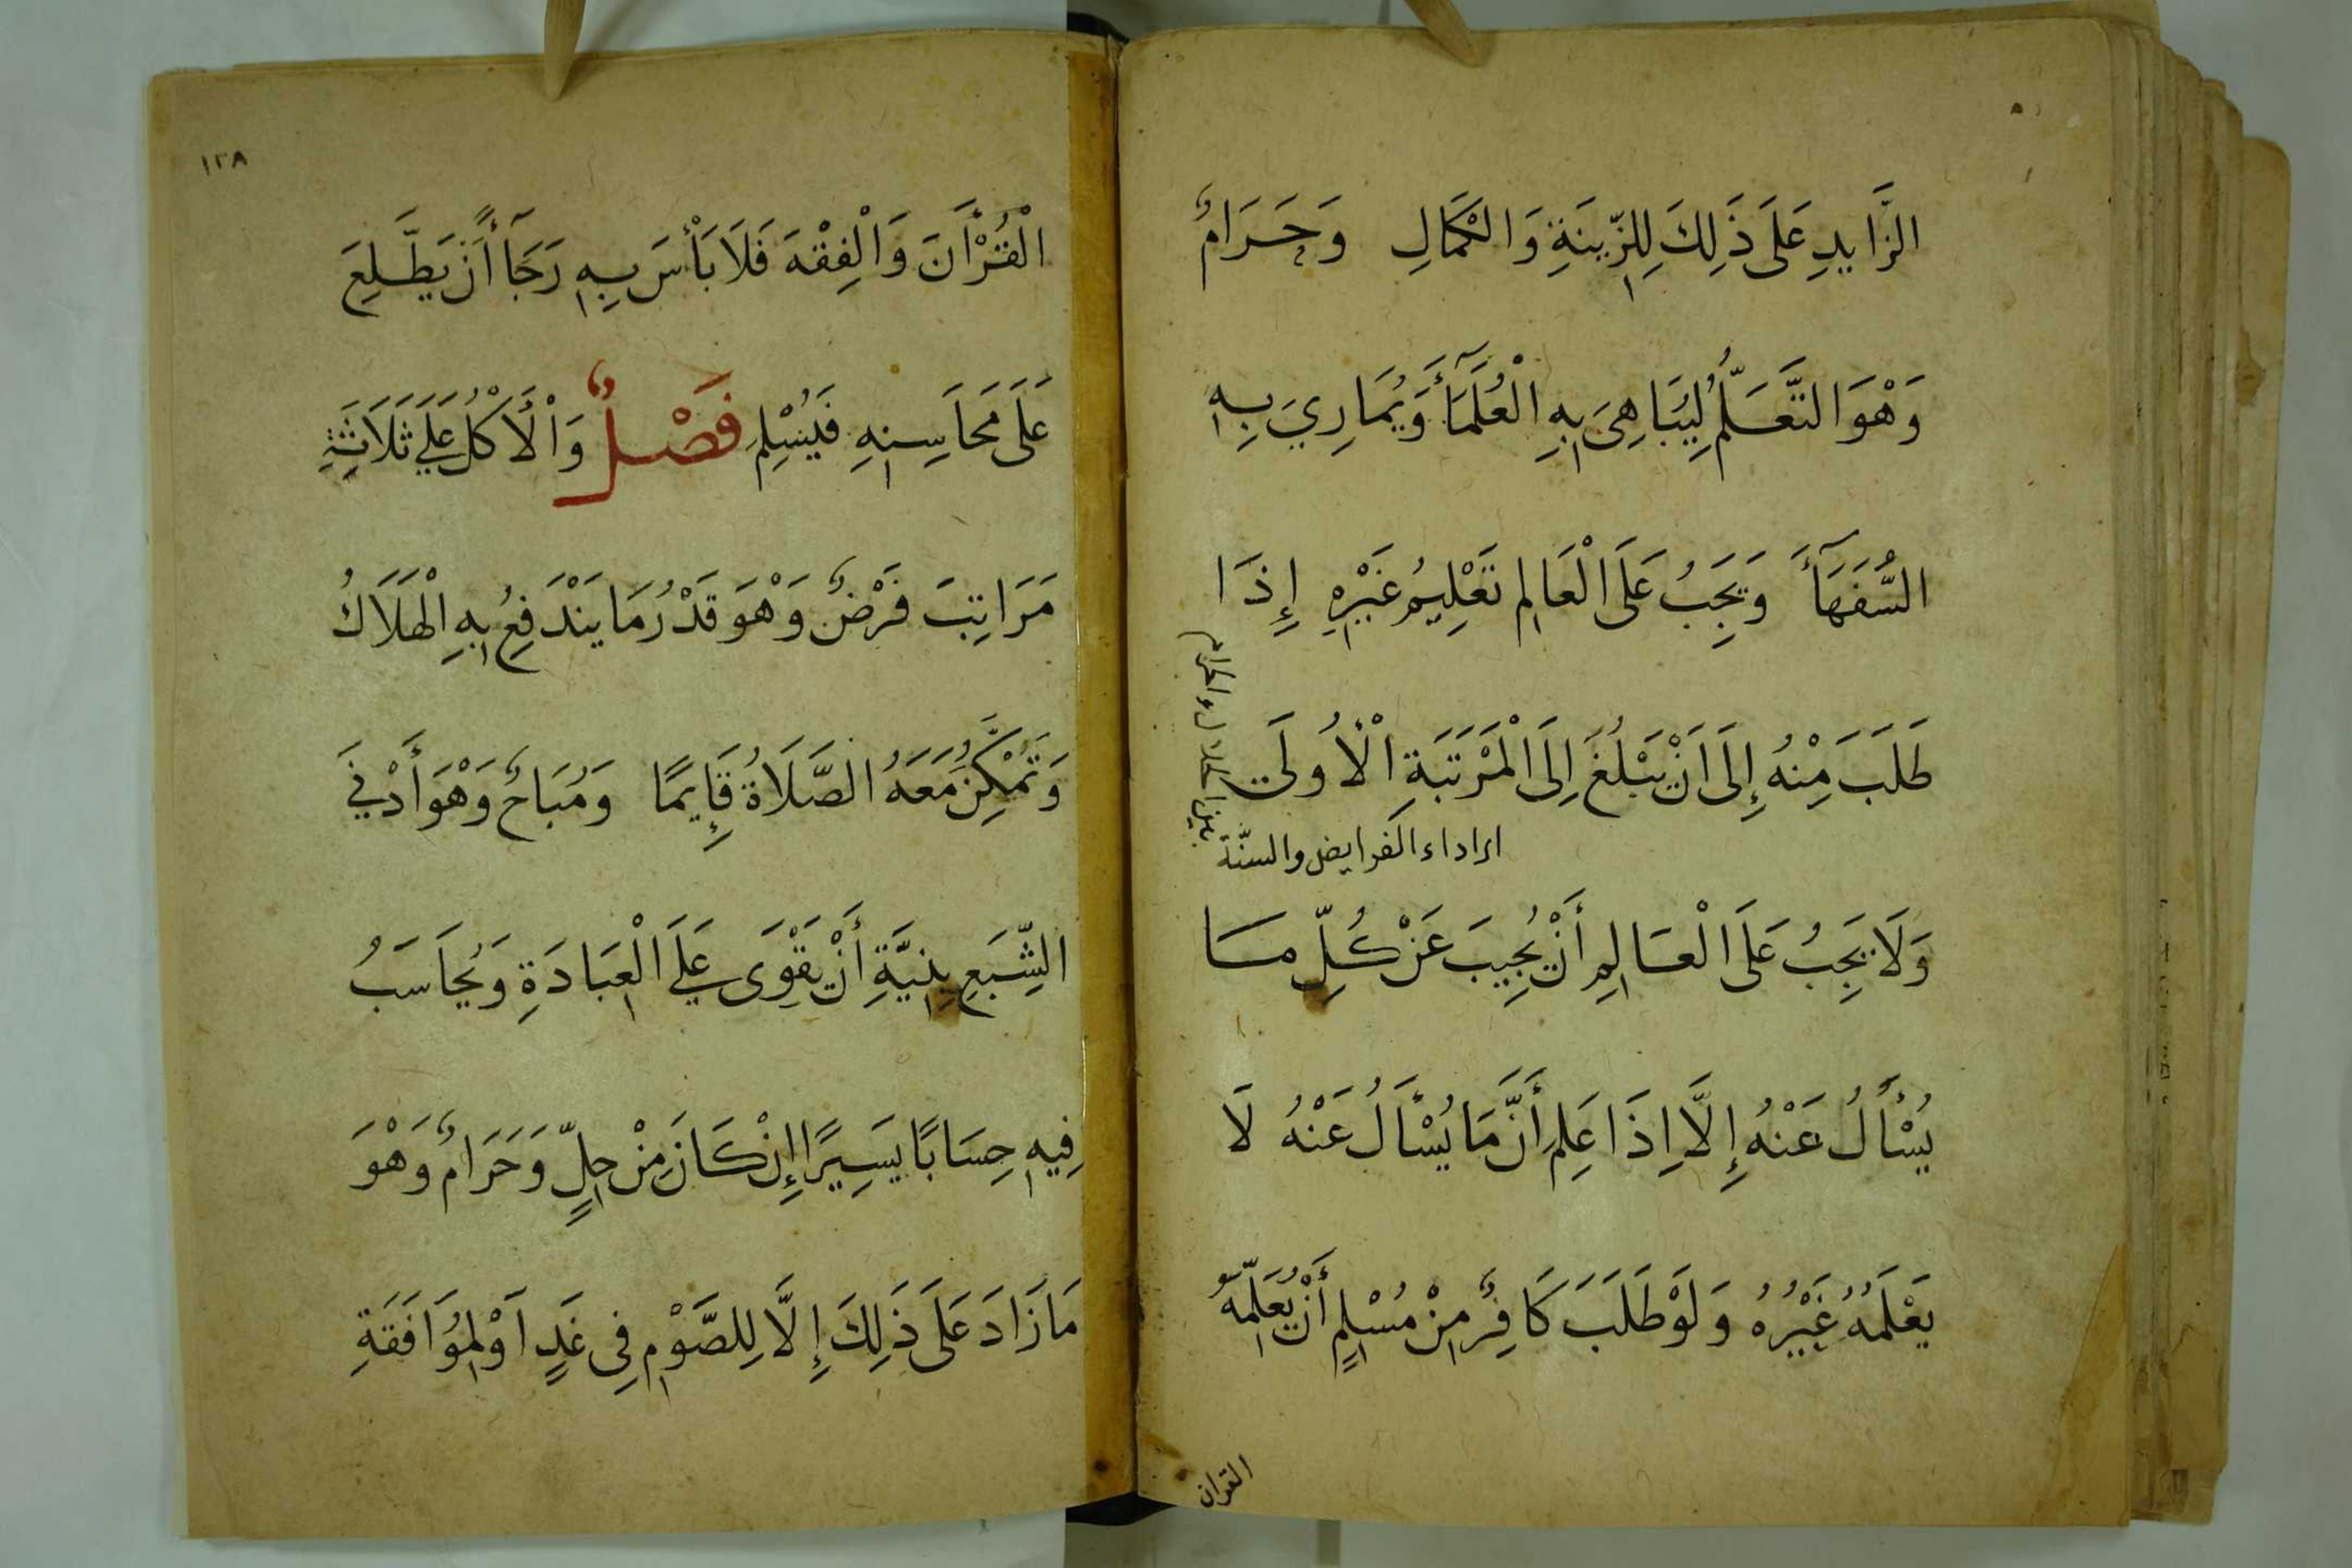 الزَّايِدِ عَلَى ذَلِكَ لِلزِّينَةِ وَالْكَمَالِ وَحَرَامٌ
وَهْوَ التَّعَلُّمُ لِيُبَاهِيَ بِهِ الْعُلَمَآءَ وَيُمَارِيَ بِهِ
السُّفَهَآءَ وَيَجِبُ عَلَى الْعَالِمِ تَعْلِيمُ غَيْرِهِ إِذَا
طَلَبَ مِنْهُ إِلَى اَنْ يَبْلُغَ اِلَى الْمَرْتَبَةِ الْأُولَى
اى اداء الفرايض والسنة
بين الحلال والحرام
وَلَا يَجِبُ عَلَى الْعَالِمِ أَنْ يُجِيبَ عَنْ كُلِّ مَا
يُسْأَلُ عَنْهُ إِلَّا اِذَا عَلِمَ أَنَّ مَا يُسْأَلُ عَنْهُ لَا
يَعْلَمُهُ غَيْرُهُ وَلَوْ طَلَبَ كَافِرٌ مِنْ مُسْلِمٍ أَنْ يُعَلِّمَهُ
القران
١٢٨
الْقُرْأَنَ وَالْفِقْهَ فَلَا بَأْسَ بِهِ رَجَآءً أَنْ يَطَّلِعَ
عَلَى مَحَاسِنِهِ فَيُسْلِمَ فَصْلٌ وَالْأَكْلُ عَلَى ثَلَاثَةِ
مَرَاتِبَ فَرْضٌ وَهْوَ قَدْرُ مَا يَنْدَفِعُ بِهِ الْهَلَاكُ
وَتُمْكِنُ مَعَهُ الصَّلَاةُ قَايِمًا وَمُبَاحٌ وَهْوَ أَدْنَى
الشِّبَعِ بِنِيَّةِ أَنْ يَقْوَى عَلَى الْعِبَادَةِ وَيُحَاسَبُ
فِيهِ حِسَابًا يَسِيرًا إِنْ كَانَ مِنْ حِلٍّ وَحَرَامٌ وَهْوَ
مَا زَادَ عَلَى ذَلِكَ إِلَّا لِلصَّوْمِ فِى غَدٍ اَوْ لِمُوَافَقَةِ